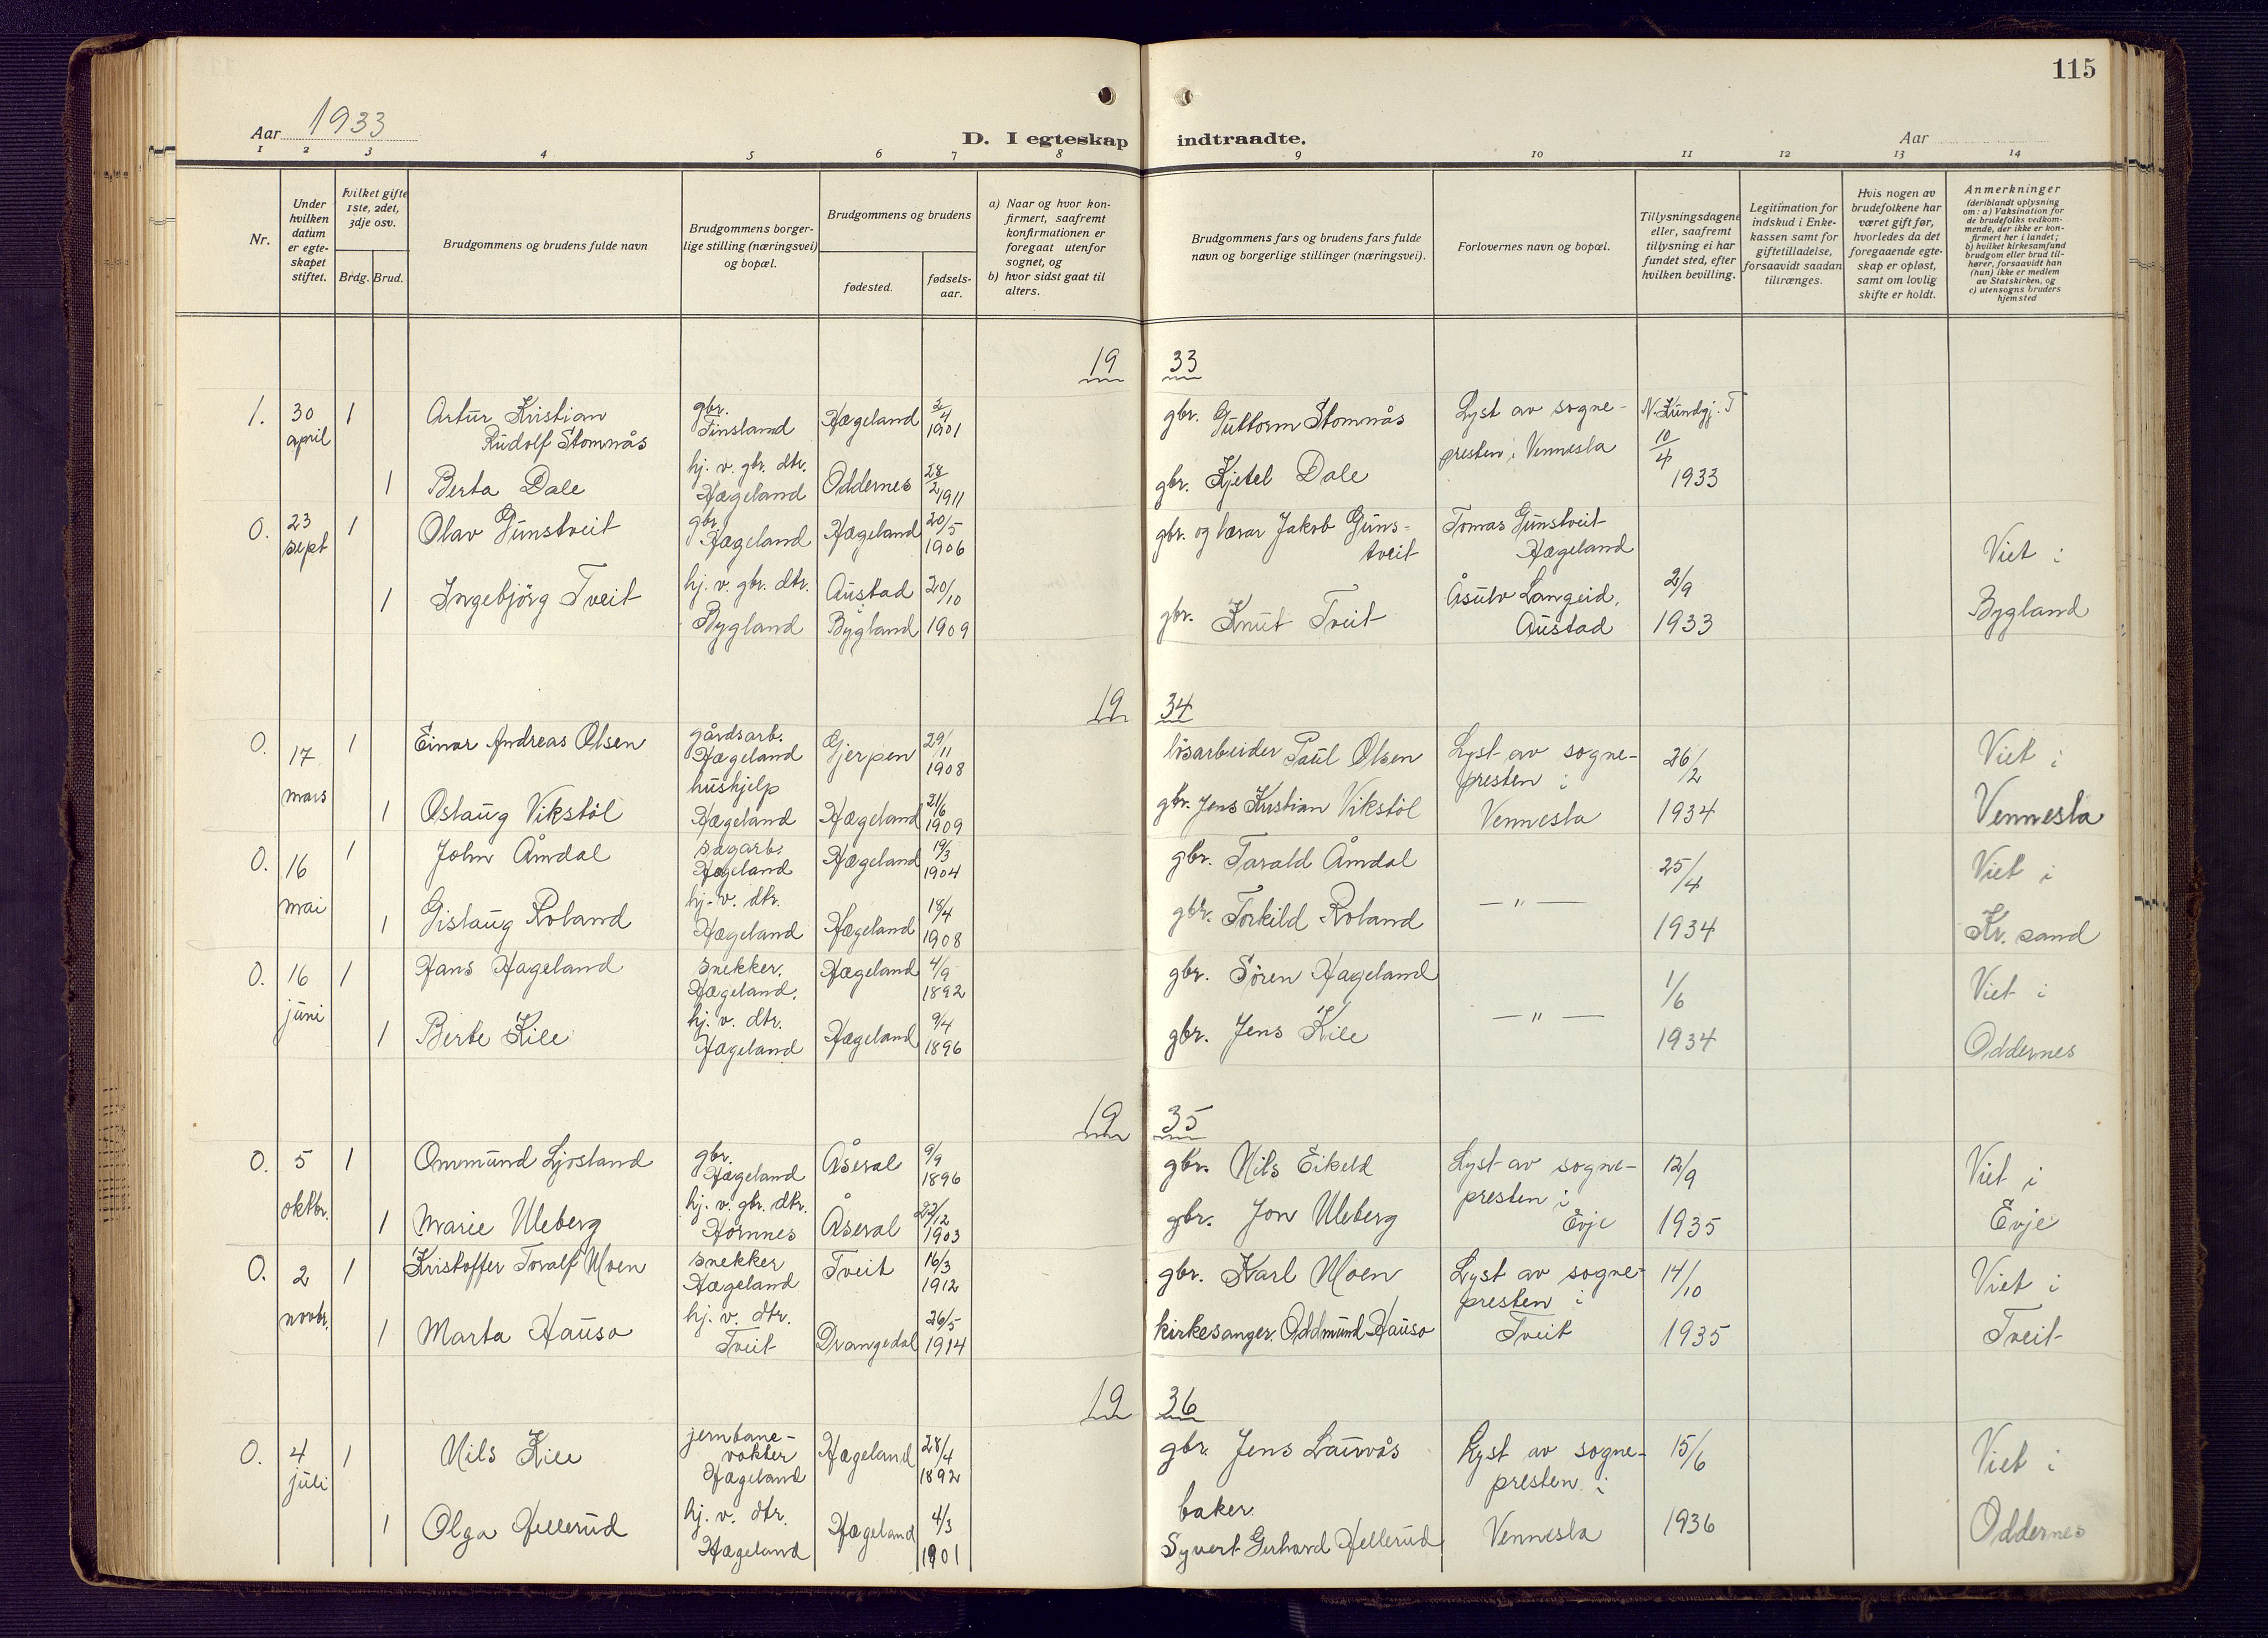 115
Aar 1933
D. I egteskap indtraadte.
Aar
1 2 3 4 5 6 7 8 9 10 11 12 13 14
Nr.
Under hvilken datum er egteskapet stiftet.
Hvilket gifte 1ste, 2det, 3dje osv.
Brdg. Brud.
Brudgommens og brudens fulde navn
Brudgommens borgerlige stilling (næringsvei) og bopæl.
Brudgommens og brudens
fødested.
fødselsaar.
a) Naar og hvor konfirmert, saafremt konfirmationen er foregaat utenfor sognet, og
b) hvor sidst gaat til alters.
Brudgommens fars og brudens fars fulde navn og borgerlige stillinger (næringsvei).
Forlovernes navn og bopæl.
Tillysningsdagene eller, saafremt tillysning ei har fundet sted, efter hvilken bevilling.
Legitimation for indskud i Enkekassen samt for giftetilladelse, forsaavidt saadan tiltrænges.
Hvis nogen av brudefolkene har været gift før, hvorledes da det foregaaende egteskap er opløst, samt om lovlig skifte er holdt.
Anmerkninger (deriblandt oplysning om: a) Vaksination for de brudefolks vedkommende, der ikke er konfirmert her i landet; b) hvilket kirkesamfund brudgom eller brud tilhører, forsaavidt han (hun) ikke er medlem av Statskirken, og c) utensogns bruders hjemsted
19 33
1. 30 april 1 Artur Kristian Rudolf Stomnås gbr. Finsland Hægeland 2/4 1901 gbr. Guttorm Stomnås Lyst av sognepresten i Vennesla N. Kundgj. T 10/4 1933
1 Berta Dale hj. v. gbr. dtr. Hægeland Oddernes 28/2 1911 gbr. Kjetel Dale
0. 23 sept 1 Olav Gunstveit gbr. Hægeland Hægeland 20/5 1906 gbr. og lærar Jakob Gunstveit Tomas Gunstveit Hægeland 2/9 1933 Viet i Bygland
1 Ingebjörg Tveit hj. v. gbr. dtr. Bygland Austad Bygland 20/10 1909 gbr. Knut Tveit Åsulv Langeid, Austad
19 34
0. 17 mars 1 Einar Andreas Olsen gårdsarb. Hægeland Gjerpen 29/11 1908 løsarbeider Paul Olsen Lyst av sognepresten i Vennesla 26/2 1934 Viet i Vennesla
1 Oslaug Vikstöl hushjelp Hægeland Hægeland 21/6 1909 gbr. Jens Kristian Vikstöl
0. 16 mai 1 John Åmdal sagarb. Hægeland Hægeland 19/3 1904 gbr. Tarald Åmdal — " — 25/4 1934 Viet i Kr. sand
1 Gislaug Roland hj. v. dtr. Hægeland Hægeland 18/4 1908 gbr. Torkild Roland
0. 16 juni 1 Hans Hageland snekker. Hægeland. Hægeland 4/9 1892 gbr. Søren Hageland — " — 1/6 1934 Viet i Oddernes
1 Berte Kile hj. v. dtr. Hægeland Hægeland 9/4 1896 gbr. Jens Kile
19 35
0. 5 oktbr. 1 Ommund Ljosland gbr. Hægeland Åseral 9/9 1896 gbr. Nils Eikeld Lyst av sognepresten i Evje 12/9 1935 Viet i Evje
1 Marie Uleberg hj. v. gbr. dtr. Hornnes Åseral 22/12 1903 gbr. Jon Uleberg
0. 2 novbr. 1 Kristoffer Toralf Moen snekker Hægeland Tveit 16/3 1912 gbr. Karl Moen Lyst av sognepresten i Tveit 14/10 1935 Viet i Tveit
1 Marta Hauso hj. v. dtr. Tveit Drangedal 26/5 1914 kirkesanger. Oddmund Hauso
19 36
0. 4 juli 1 Nils Kile jernbanevokter Hægeland Hægeland 28/4 1892 gbr. Jens Lauvås Lyst av sognepresten i Vennesla 15/6 1936 Viet i Oddernes
1 Olga Hellerud hj. v. dtr. Hægeland Hægeland 4/3 1901 baker. Syvert Gerhard Hellerud